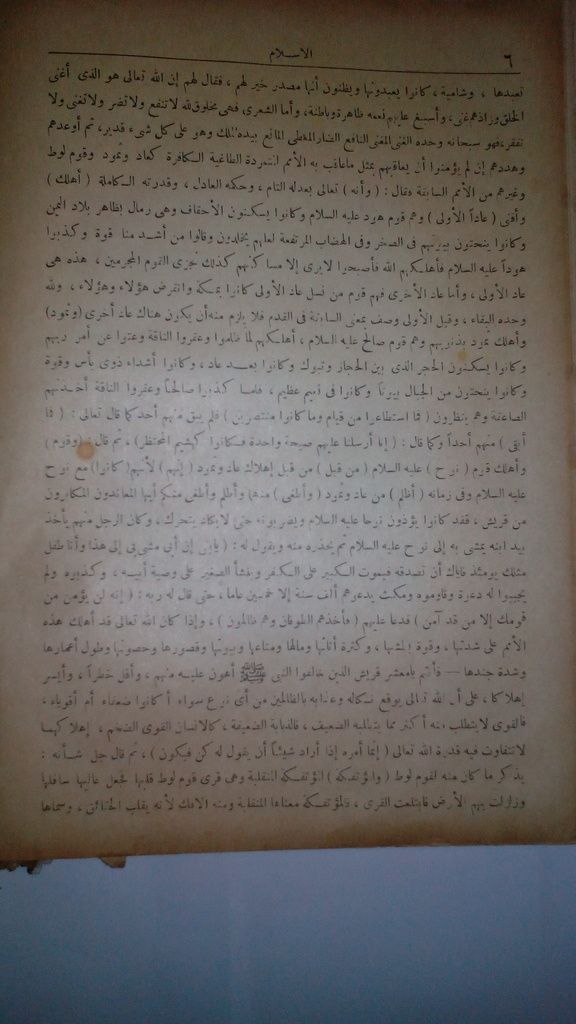 ٦
الاسلام
تعبدها ، وشامية ، كانوا يعبدونها ويظنون أنها مصدر خير لهم ، فقال لهم إن الله تعالى هو الذى أغنى
الخلق وزادهم غنى ، وأسبغ عليهم نعمه ظاهرة وباطنة ، وأما الشعرى فهى مخلوق لله لا تنفع ولا تضر ولا تغنى ولا
تفقر ، فهو سبحانه وحده الغنى المغنى النافع الضار المعطى المانع بيده الملك وهو على كل شىء قدير ، ثم أوعدهم
وهددهم إن لم يؤمنوا أن يعاقبهم بمثل ماعاقب به الأمم المتمردة الطاغية الكافرة كعاد وثمود وقوم لوط
وغيرهم من الأمم السابقة فقال : ( وأنه ) تعالى بعدله التام ، وحكمه العادل ، وقدرته الكاملة ( أهلك )
وأفنى ( عاداً الأولى ) وهم قوم هود عليه السلام وكانوا يسكنون الأحقاف وهى رمال بظاهر بلاد اليمن
وكانوا ينحتون بيوتهم فى الصخر وفى الهضاب المرتفعة لعلهم يخلدون وقالوا من أشد منا قوة وكذبوا
هوداً عليه السلام فأهلكهم الله فأصبحوا لا يرى إلا مساكنهم كذلك نجزى القوم المجرمين ، هذه هى
عاد الأولى ، وأما عاد الأخرى فهم قوم من نسل عاد الأولى كانوا بمكة وانقرض هؤلاء وهؤلاء ، ولله
وحده البقاء ، وقيل الأولى وصف بمعنى السابقة فى القدم فلا يلزم منه أن يكون هناك عاد أخرى (وثمود)
وأهلك ثمود بذنوبهم وهم قوم صالح عليه السلام ، أهلكهم لما ظلموا وعقروا الناقة وعتوا عن أمر ربهم
وكانوا يسكنون الحجر الذى بين الحجاز وتبوك وكانوا بعد عاد ، وكانوا أشداء ذوى بأس وقوة
وكانوا ينحتون من الجبال بيوتا وكانوا فى نعيم عظيم ، فلما كذبوا صالحاً وعقروا الناقة أخذتهم
الصاعقة وهم ينظرون ( فما استطاعوا من قيام وما كانوا منتصرين ) فلم يبق منهم أحد كما قال تعالى : ( فما
أبقى ) منهم أحداً وكما قال : ( إنا أرسلنا عليهم صيحة واحدة فكانوا كهشيم المحتظر ) ، ثم قال : ( وقوم )
وأهلك قوم ( نوح ) عليه السلام ( من قبل ) من قبل إهلاك عاد وثمود ( إنهم ) لأنهم ( كانوا ) مع نوح
عليه السلام وفى زمانه ( أظلم ) من عاد وثمود ( وأطغى ) منهما وأظلم وأطغى منكم أيها المعاندون المكابرون
من قريش ، فقد كانوا يؤذون نوحا عليه السلام ويضربونه حتى لا يكاد يتحرك ، وكان الرجل منهم يأخذ
بيد ابنه يمشى به إلى نوح عليه السلام ثم يحذره منه ويقول له : ( يابنى إن أبى مشى بى إلى هذا وأنا طفل
مثلك يومئذ فاياك أن تصدقه فيموت الكبير على الكفر وينشأ الصغير على وصية أبيه ، وكذبوه ولم
يجيبوا له دعوة وقاوموه ومكث يدعوهم ألف سنة إلا خمسين عاما ، حتى قال له ربه : ( إنه لن يؤمن من
قومك إلا من قد آمن ) فدعا عليهم ( فأخذهم الطوفان وهم ظالمون ) ، وإذا كان الله تعالى قد أهلك هذه
الأمم على شدتها ، وقوة بطشها ، وكثرة أثاثها ومالها ومتاعها وبيوتها وقصورها وحصونها وطول أعمارها
وشدة جندها — فأنتم يامعشر قريش الذين خالفوا النبى ﷺ أهون عليه منهم ، وأقل خطراً ، وأيسر
إهلاكا ، على أن الله تعالى يوقع نكاله وعذابه بالظالمين من أى نوع سواء أكانوا ضعفاء أم أقوياء ،
فالقوى لا يتطلب منه أكثر مما يتطلبه الضعيف ، فالذبابة الضعيفة ، كالانسان القوى الضخم ، إهلاكهما
لا تتفاوت فيه قدرة الله تعالى ( إنما أمره إذا أراد شيئاً أن يقول له كن فيكون ) ، ثم قال جل شأنه :
يذكر ما كان منه لقوم لوط ( والمؤتفكة ) المؤتفكة المنقلبة وهى قرى قوم لوط قلبها فجعل عاليها سافلها
وزلزلت بهم الأرض فابتلعت القرى ، فالمؤتفكة معناها المنقلبة ومنه الافك لأنه يقلب الحقائق ، وسماها